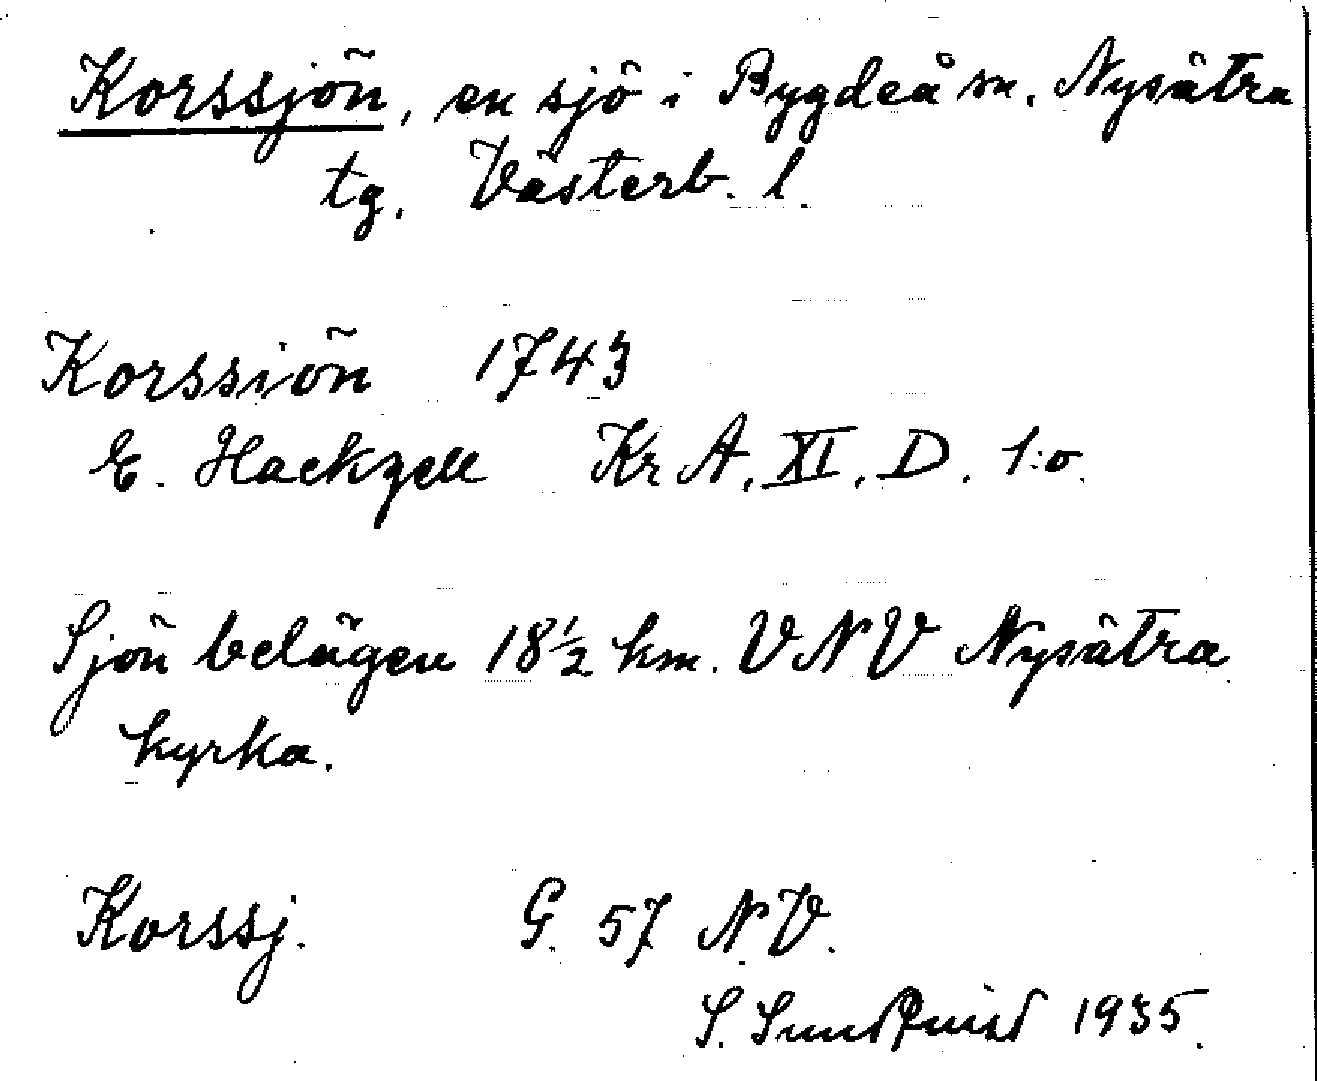 Korssjön, en sjö i Bygdeå sn. Nysätra
tg. Västerb. l.
Korssiön 1743
E. Hackzell Kr A. XI. D. 1:o.
Sjön belägen 18 1/2 km. VNV Nysätra
kyrka.
Korssj. G. 57 N.V.
S. Sundquist 1935.